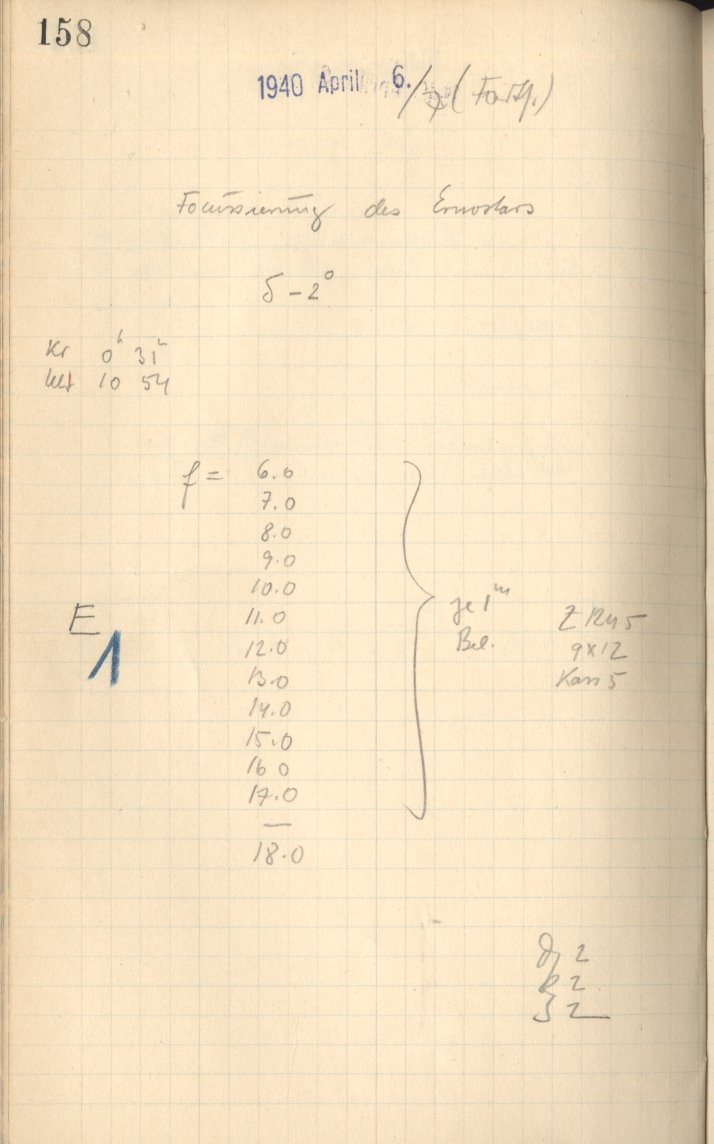 158
1940 April 6./7 (Forts.)
Focussierung des Ernostars
δ -2°
Kr 0ʰ 31ᵐ
10 54
f = 6.0
7.0
8.0
9.0
10.0
11.0
12.0
13.0
14.0
15.0
16 0
17.0
—
18.0
E
1
je 1ᵐ
Bel.
Z
9x12
Kass 5
2
2
2